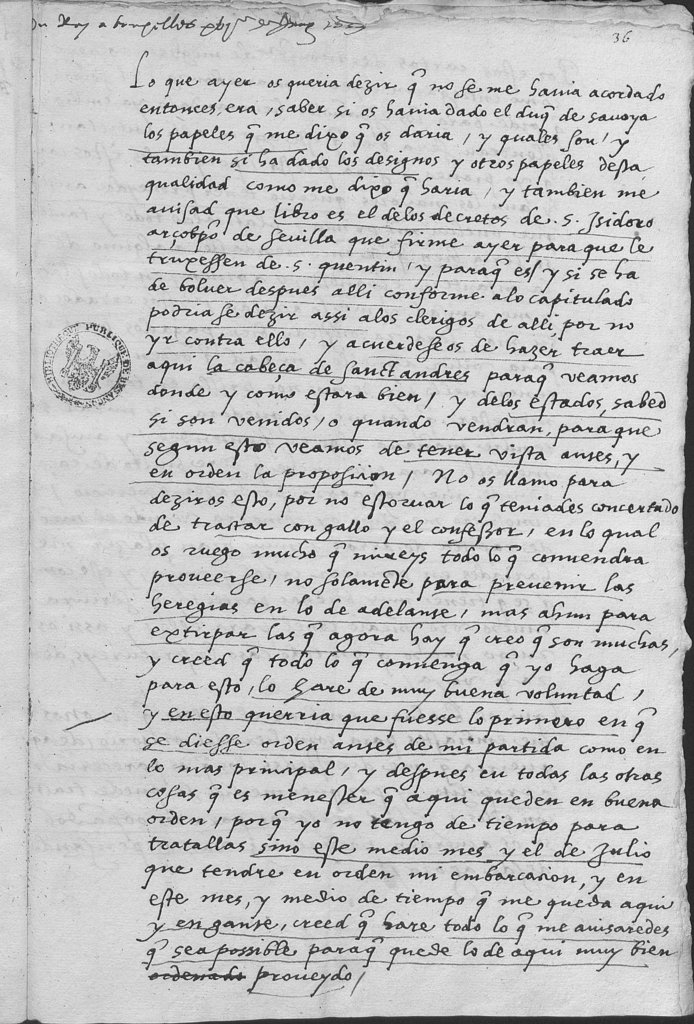 Rey a bruxellas
36
Lo que ayer os queria dezir q̃ no se me havia acordado
entonces, era, saber si os havia dado el duq̃ de savoya
los papeles q̃ me dixo q̃ os daria, y quales son, y
tambien si ha dado los designos y otros papeles desta
qualidad como me dixo q̃ haria, y tambien me
avisad que libro es el delos decretos de .S. Isidoro
arçobpõ de sevilla que firme ayer para que le
truxessen de .S. quentin, y paraq̃ es / y si se ha
de bolver despues alli conforme alo capitulado
podria se dezir assi alos clerigos de alli, por no
yr contra ello, y acuerdeseos de hazer traer
aqui la cabeça de sanct andres paraq̃ veamos
donde y como estara bien, y delos estados, sabed
si son venidos, o quando vendran, para que
segun esto veamos de tener vista antes, y
en orden la proposicion, No os llamo para
deziros esto, por no estorvar lo q̃ teniades concertado
de tractar con gallo y el confessor, en lo qual
os ruego mucho q̃ mireys todo lo q̃ convendra
proveerse, no solamẽte para prevenir las
heregias en lo de adelante, mas ahun para
extirpar las q̃ agora hay q̃ creo q̃ son muchas,
y creed q̃ todo lo q̃ convenga q̃ yo haga
para esto, lo hare de muy buena voluntad,
y en esto querria que fuesse lo primero en q̃
se diesse orden antes de mi partida como en
lo mas principal, y despues en todas las otras
cosas q̃ es menester q̃ aqui queden en buena
orden, porq̃ yo no tengo de tiempo para
tratallas sino este medio mes y el de Julio
que tendre en orden mi embarcacion, y en
este mes, y medio de tiempo q̃ me queda aqui
y en gante, creed q̃ hare todo lo q̃ me avisaredes
q̃ sea possible paraq̃ quede lo de aqui muy bien
ordenado proveydo,